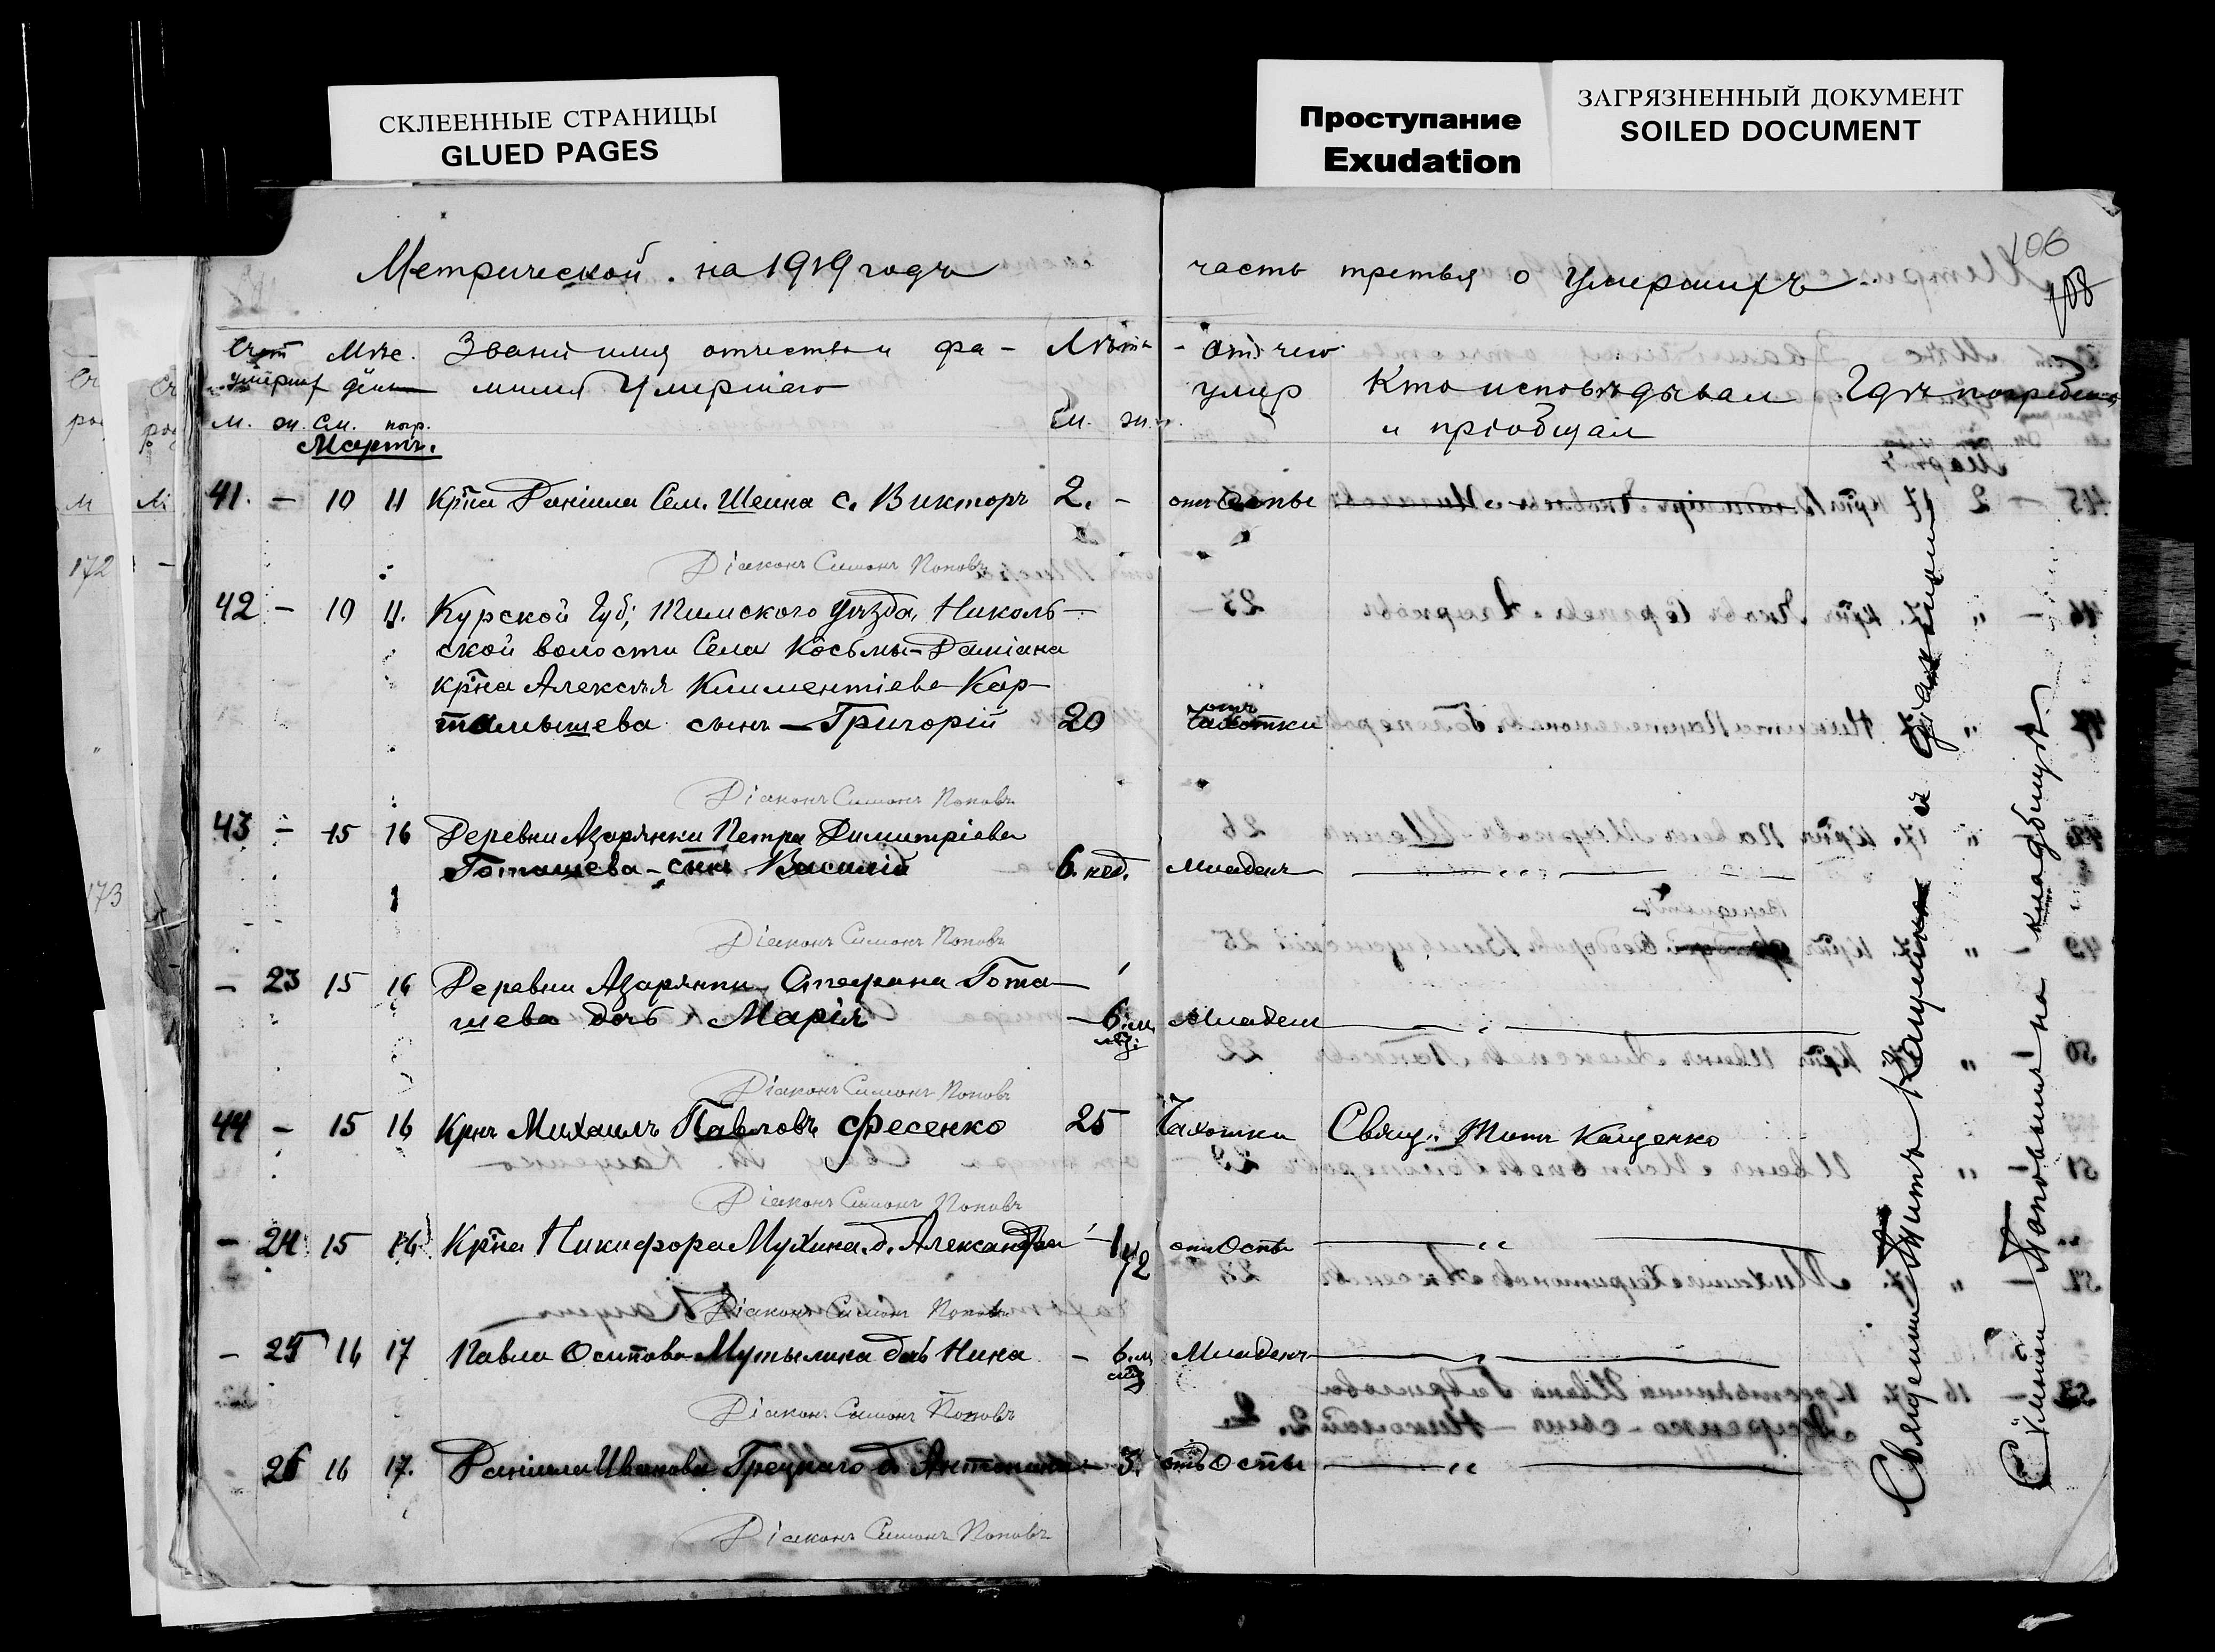 СКЛЕЕННЫЕ СТРАНИЦЫ
GLUED PAGES
Проступание
Exudation
ЗАГРЯЗНЕННЫЙ ДОКУМЕНТ
SOILED DOCUMENT
Метрической на 1919 годъ
часть третья о умершихъ
106
108
Мѣс. Званіе имя отчество и фа-
милія Умершаго
М. ж. См. погр.
Мартъ.
Лѣта
М. ж.
Отъ чего
умер
Кто исповѣдывал
и пріобщал
Гдѣ погребенъ
41. - 10 11 Крѣна Даніила Сем. Шеина с. Викторъ 2. - отъ Оспы
Діаконъ Симонъ Поповъ
42 - 10 11. Курской Губ; Тимского уѣзда, Николь-
ской волости Села Косьмы-Даміана
крѣна Алексѣя Климентіева Кар-
тамышева сынъ - Григорій 20 отъ Чахотки
Діаконъ Симонъ Поповъ
43 - 15 16 Деревни Азарянки Петра Димитріева
Готашева - снъ Василій 6. нед. Младенъ
Діаконъ Симонъ Поповъ
- 23 15 16 Деревни Азарянки Стефана Гота-
шева дочь Марія - 6. м Младен
Діаконъ Симонъ Поповъ
44 - 15 16 Крнъ Михаилъ Павловъ Фесенко 25 Чахотки Свящ. Титъ Кащенко
Діаконъ Симонъ Поповъ
- 24 15 16 Крѣна Никифора Мухина д. Александра - 1 1/2 отъ Оспы
Діаконъ Симонъ Поповъ
- 25 16 17 Павла Осипова Мутылина дочь Нина - 6. м Младенъ
Діаконъ Симонъ Поповъ
- 26 16 17. Даніила Иванова Грецкаго д. Антонина - 3. отъ Оспы
Діаконъ Симонъ Поповъ
Священникъ Титъ Кащенко съ діакономъ
Симономъ Поповымъ на кладбищѣ